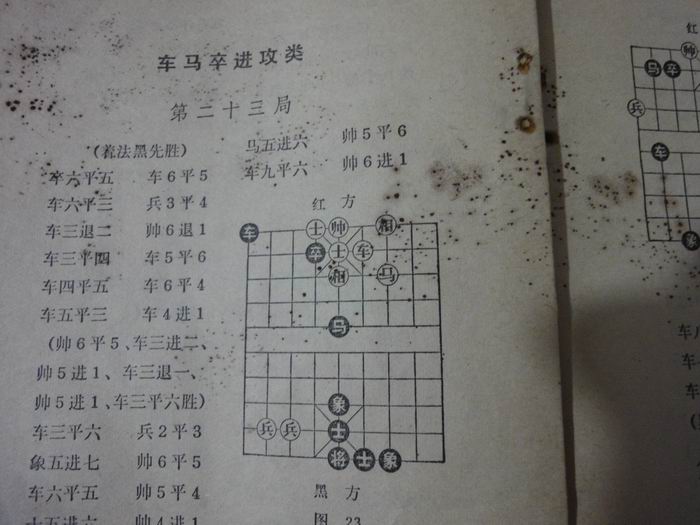 车马卒进攻类
第二十三局
(着法黑先胜)
卒六平五 车6平5
车六平三 兵3平4
车三退二 帅6退1
车三平四 车5平6
车四平五 车6平4
车五平三 车4进1
(帅6平5、车三进二、
帅5进1、车三退一、
帅5进1、车三平六胜)
车三平六 兵2平3
象五进七 帅6平5
车六平五 帅5平4
士五进六 帅4进1
马五进六 帅5平6
车九平六 帅6进1
红方
车 士 帅 相
卒 士 车
相 马
马
象
兵 兵 士
将 士 象
黑方
图 23
红
帅
马 卒
兵
车
象
车
车